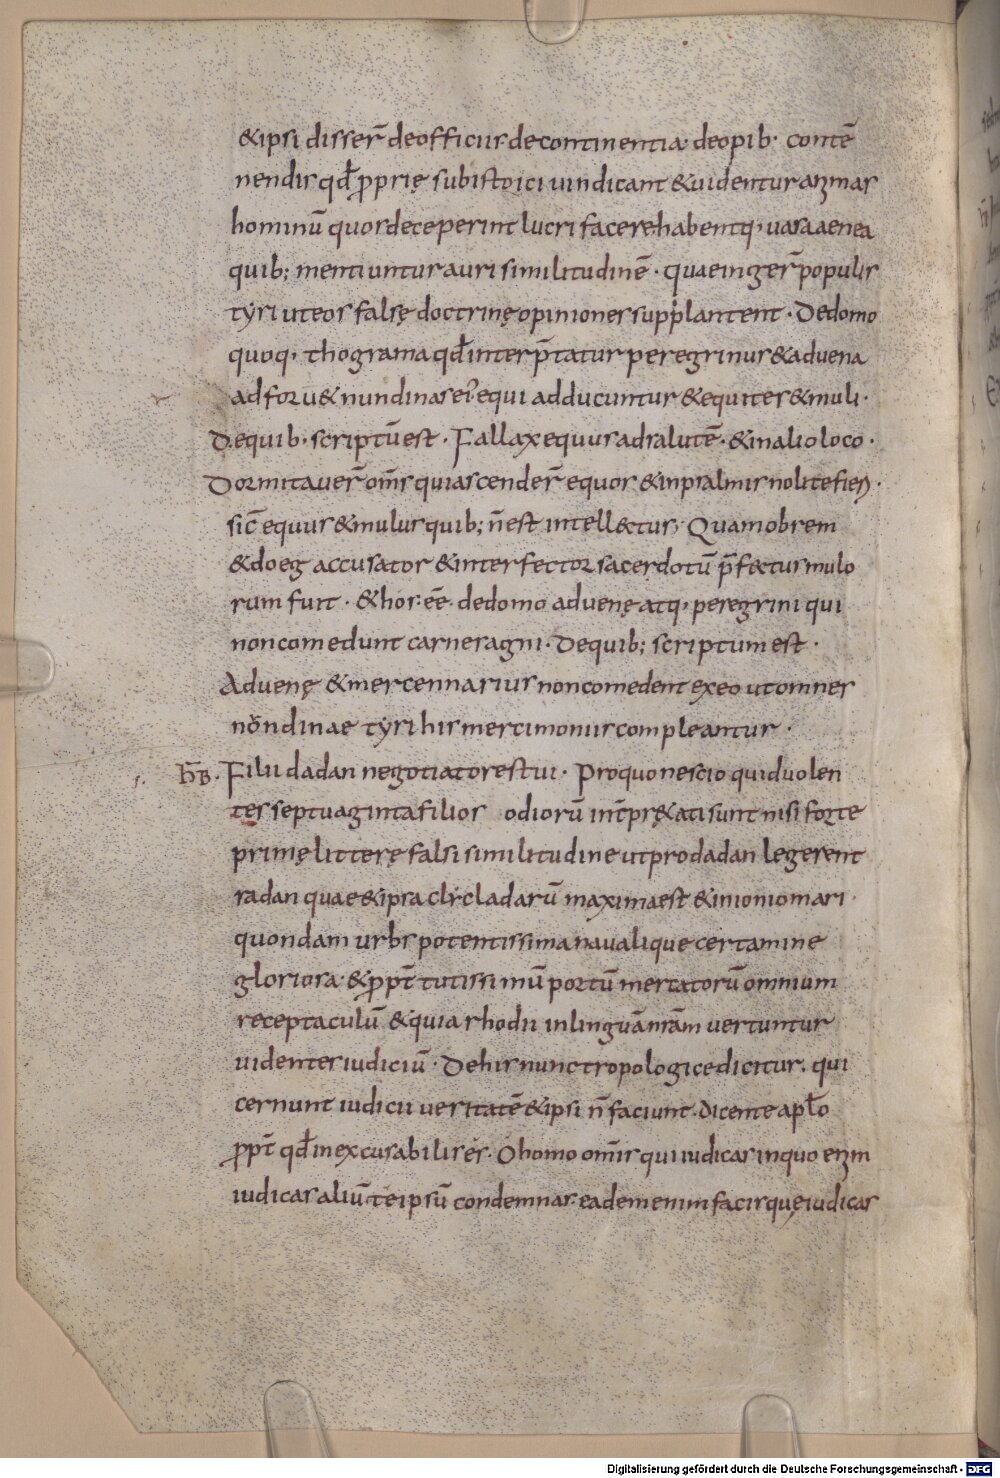 &ipsi disser̄ deofficiis decontinentia deopib· contē
nendis qd̄ p̄prię subistoici uindicant &uidentur animas
hominū quos deceperint lucri facere habentq· uasa aenea
quib; mentiuntur auri similitudinē· quae inger̄ populis
tyri uteos falsę doctrinę opiniones supplantent· Dedomo
quoq· thograma qd̄ interp̄tatur peregrinus &aduena
ad foru& nundinas ei' equi adducuntur &equites &muli·
Dequib· scriptūest· Fallax equus ad salutē· &in alio loco·
Dormitauer̄ om̄s qui ascender̄ equos &inpsalmis nolite fieri·
sic̄ equus &mulus quib; n̄ est intellectus· Quamobrem
&doeg accusator &interfector sacerdotū p̄fectus mulo
rum fuit· &hos·eē· dedomo aduenę atq· peregrini qui
non comedunt carnes agni· Dequib; scriptum est·
Aduenę &mercennarius non comedent exeo utomnes
nundinae tyri his mercimoniis compleantur·
hB̄· Filii dadan negotiatores tui· Pro quo nescio quid uolen
tes septuaginta filios odiorū int̄pręati sunt nisi forte
primę litterę falsi similitudine utpro dadan legerent
radan quae &ipsa cycladarū maxima est &inionio mari
quondam urbs potentissima nauali que certamine
gloriosa· &p̄pt̄ tutissimū portū mercatorū omnium
receptaculū &quia rhodii inlinguā nrām uertuntur
uidentes iudiciū· Dehis nunc tropologice dicitur· qui
cernunt iudicii ueritatē &ipsi n̄ faciunt· dicente apl̄o
p̄pt̄ qd̄ inexcusabilis es· O homo om̄is qui iudicas inquo enim
iudicas aliū te ipsū condemnas· eadem enim facis quę iudicas
Digitalisierung gefördert durch die Deutsche Forschungsgemeinschaft - DFG